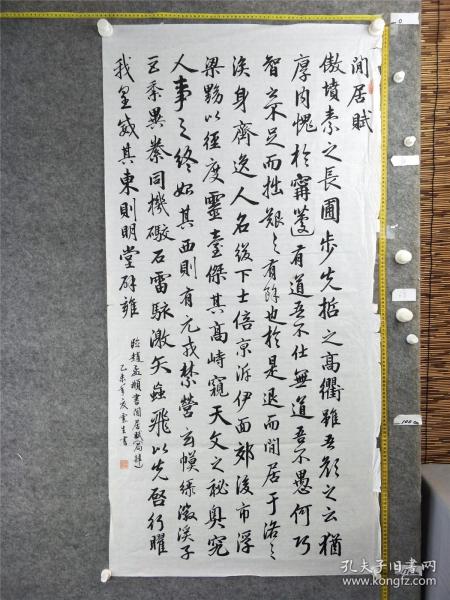 閒居賦
傲墳素之長圃步先哲之高衢雖吾顏之云猶
厚内愧於甯蘧有道吾不仕無道吾不愚何巧
智之不足而拙艱之有餘也於是退而閒居于洛之
涘身齊逸人名綴下士倍京泝伊面郊後市浮
梁黝以徑度靈臺傑其高峙窺天文之秘奥究
人事之終始其西則有元戎禁營玄幙綠徽溪子
巨黍異絭同機礮石雷駭激矢虻飛以先啓行曜
我皇威其東則明堂辟雍
臨趙孟頫書閒居賦局部
乙未年夏
書
0
100
孔夫子旧书网
kongfz.com